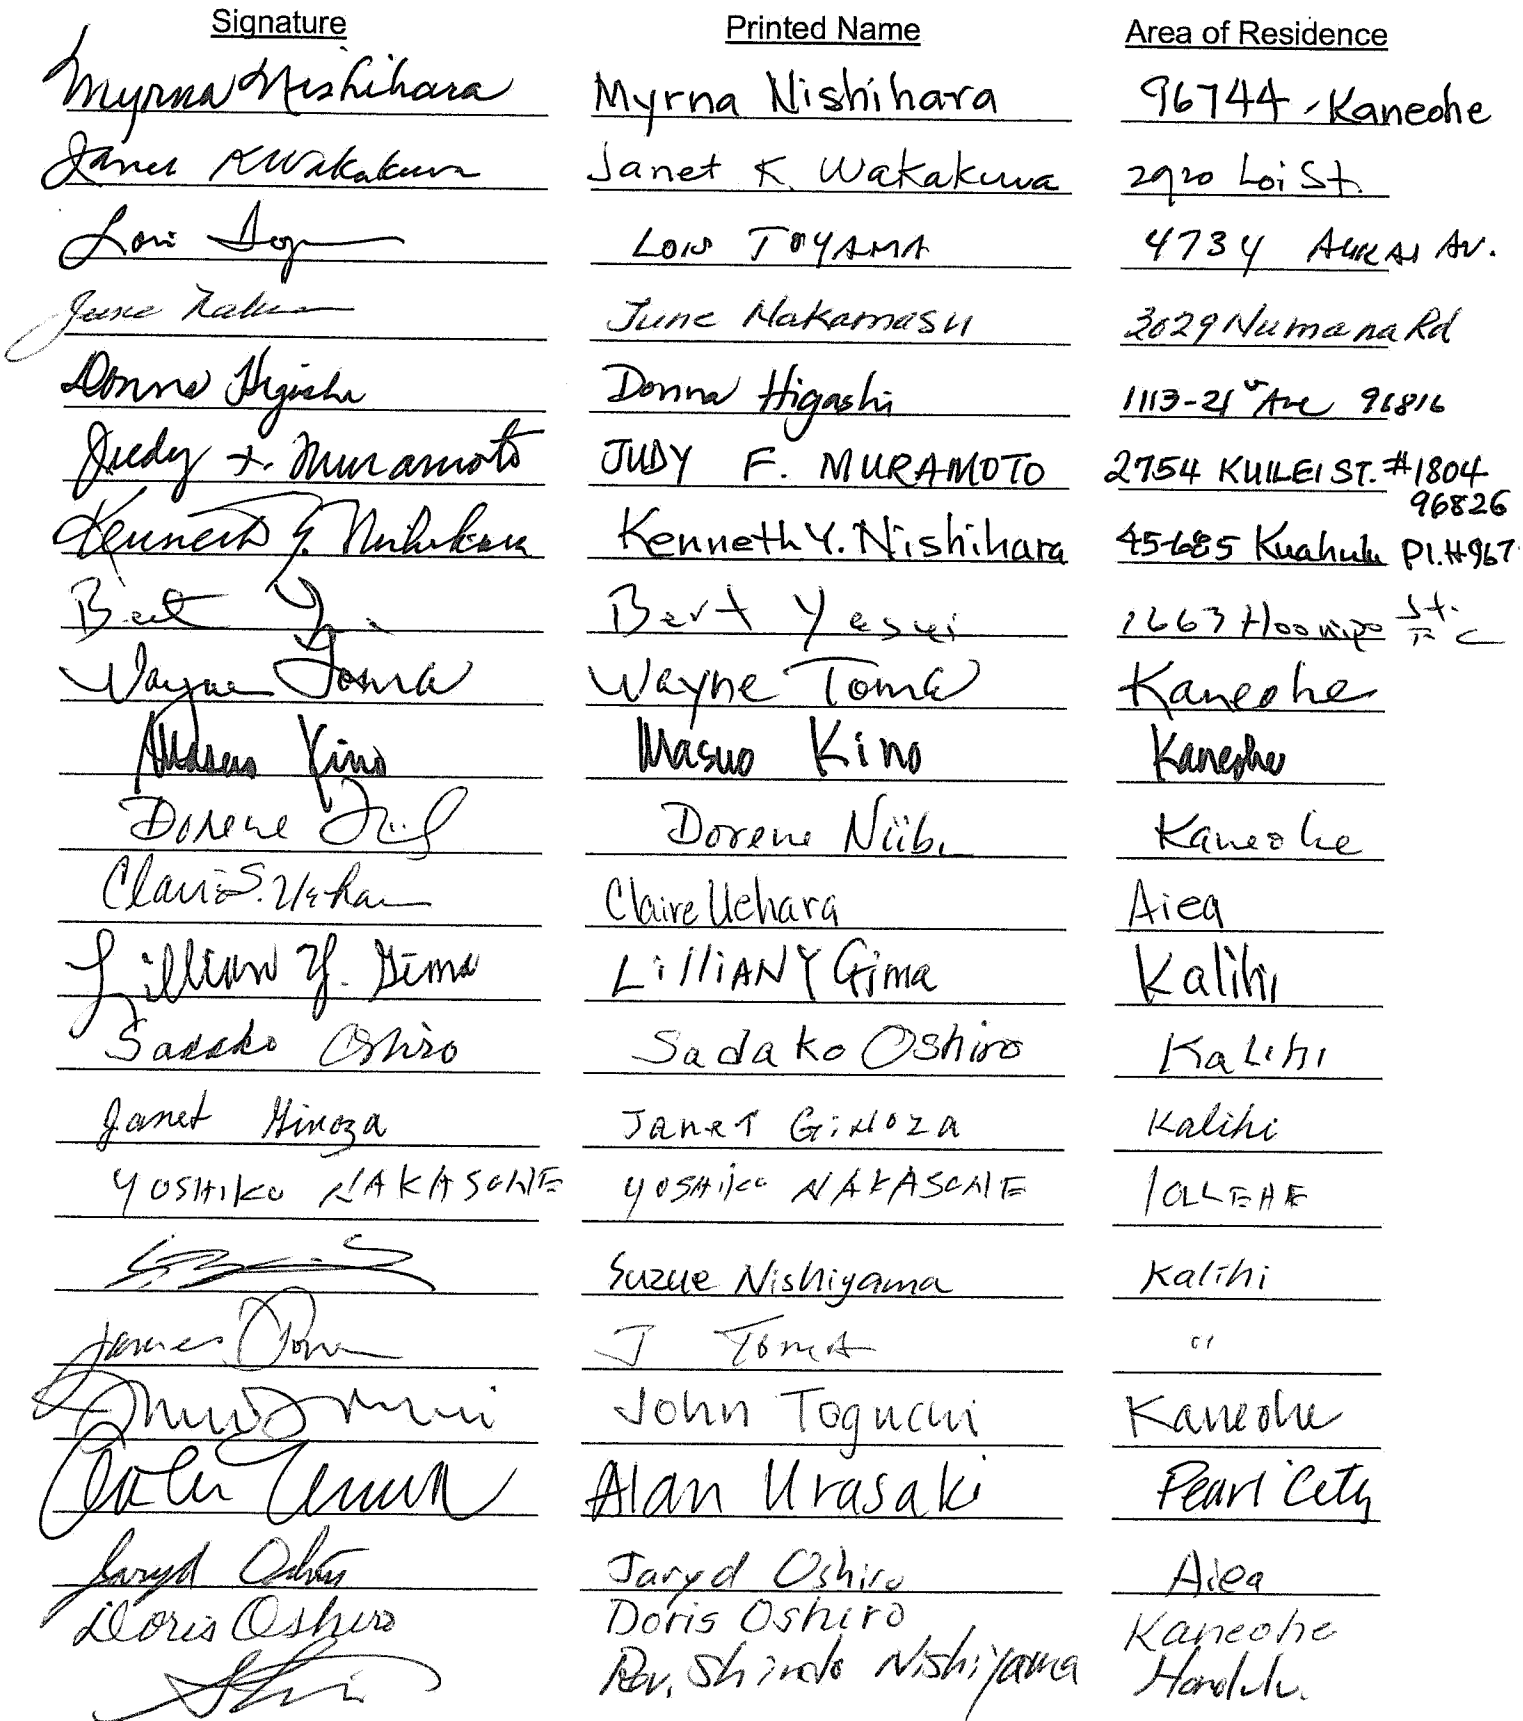 Signature Printed Name Area of Residence
Myrna Nishihara Myrna Nishihara 96744 - Kaneohe
Janet K Wakakuwa Janet K. Wakakuwa 2920 Loi St.
Lois TOYAMA 4734 AUKAI AV.
June June Nakamasu 3029 Numana Rd
Donna Higashi Donna Higashi 1113-21st Ave 96816
Judy F. Muramoto JUDY F. MURAMOTO 2754 KUILEI ST. #1804
96826
Kenneth Y. Nishihara Kenneth Y. Nishihara 45-685 Kuahulu Pl. H 967
Bert Bert Yasui 1663 Hoonipo St.
P C
Wayne Toma Wayne Toma Kaneohe
Masuo Kino Masuo Kino Kaneohe
Dorene Dorene Niibu Kaneohe
Claire S. Uehara Claire Uehara Aiea
Lillian Y. Gima LilliAN Y Gima Kalihi
Sadako Oshiro Sadako Oshiro Kalihi
Janet Ginoza Janet Ginoza Kalihi
YOSHIKO NAKASONE YOSHIKO NAKASONE
Suzue Nishiyama Kalihi
James Toma J Toma "
John Toguchi Kaneohe
Alan Urasaki Pearl City
Jaryd Oshiro Jaryd Oshiro Aiea
Doris Oshiro Doris Oshiro Kaneohe
Rev. Shindo Nishiyama Honolulu.